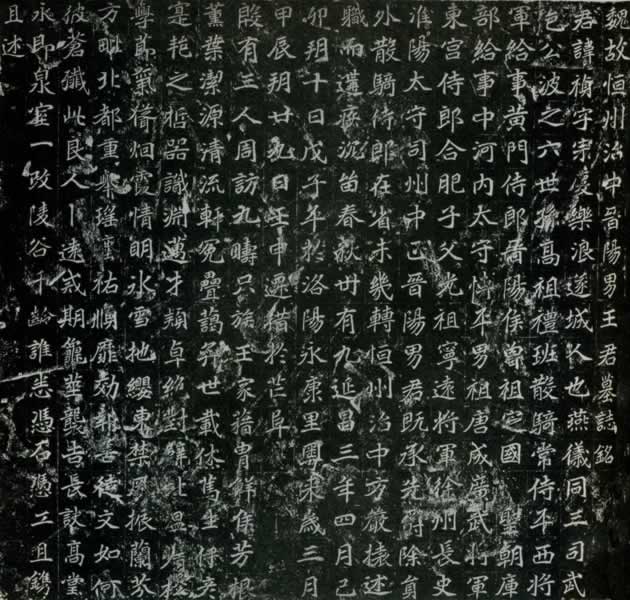 魏故恒州治中晉陽男王君墓誌銘
君諱禎字宗慶樂浪遂城人也燕儀同三司武
邑公波之六世孫高祖禮班散騎常侍平西將
軍給事黃門侍郎晉陽侯曾祖定國聖朝庫
部給事中河內太守博平男祖唐成廣武將軍
東宮侍郎合肥子父光祖寧遠將軍徐州長史
淮陽太守司州中正晉陽男君既承先爵除員
外散騎侍郎在省未幾轉恒州治中方嚴述
職而遘疾沉笛春秋卌有九延昌三年四月己
卯朔十日戊子卒於洛陽永康里粵來歲三月
甲辰朔廿九日壬申遷措於芒阜
殷有三人周訪九疇只族王家藉胄鮮侯芳根
薰葉潔源清流軒冕疊藹弈世載休篤生彥
寔之悊器識淵邁才穎卓絕對鮮止溫
學節業烱霞情明冰雪地纓東禁風振蘭芬
方毗北都重舉瑤璽祐順靡効報善徒文如何
彼蒼殲此良人卜遠戒期龜筮襲吉長高堂
永即泉室一改陵谷千齡誰悉憑石憑工且鐫
且述